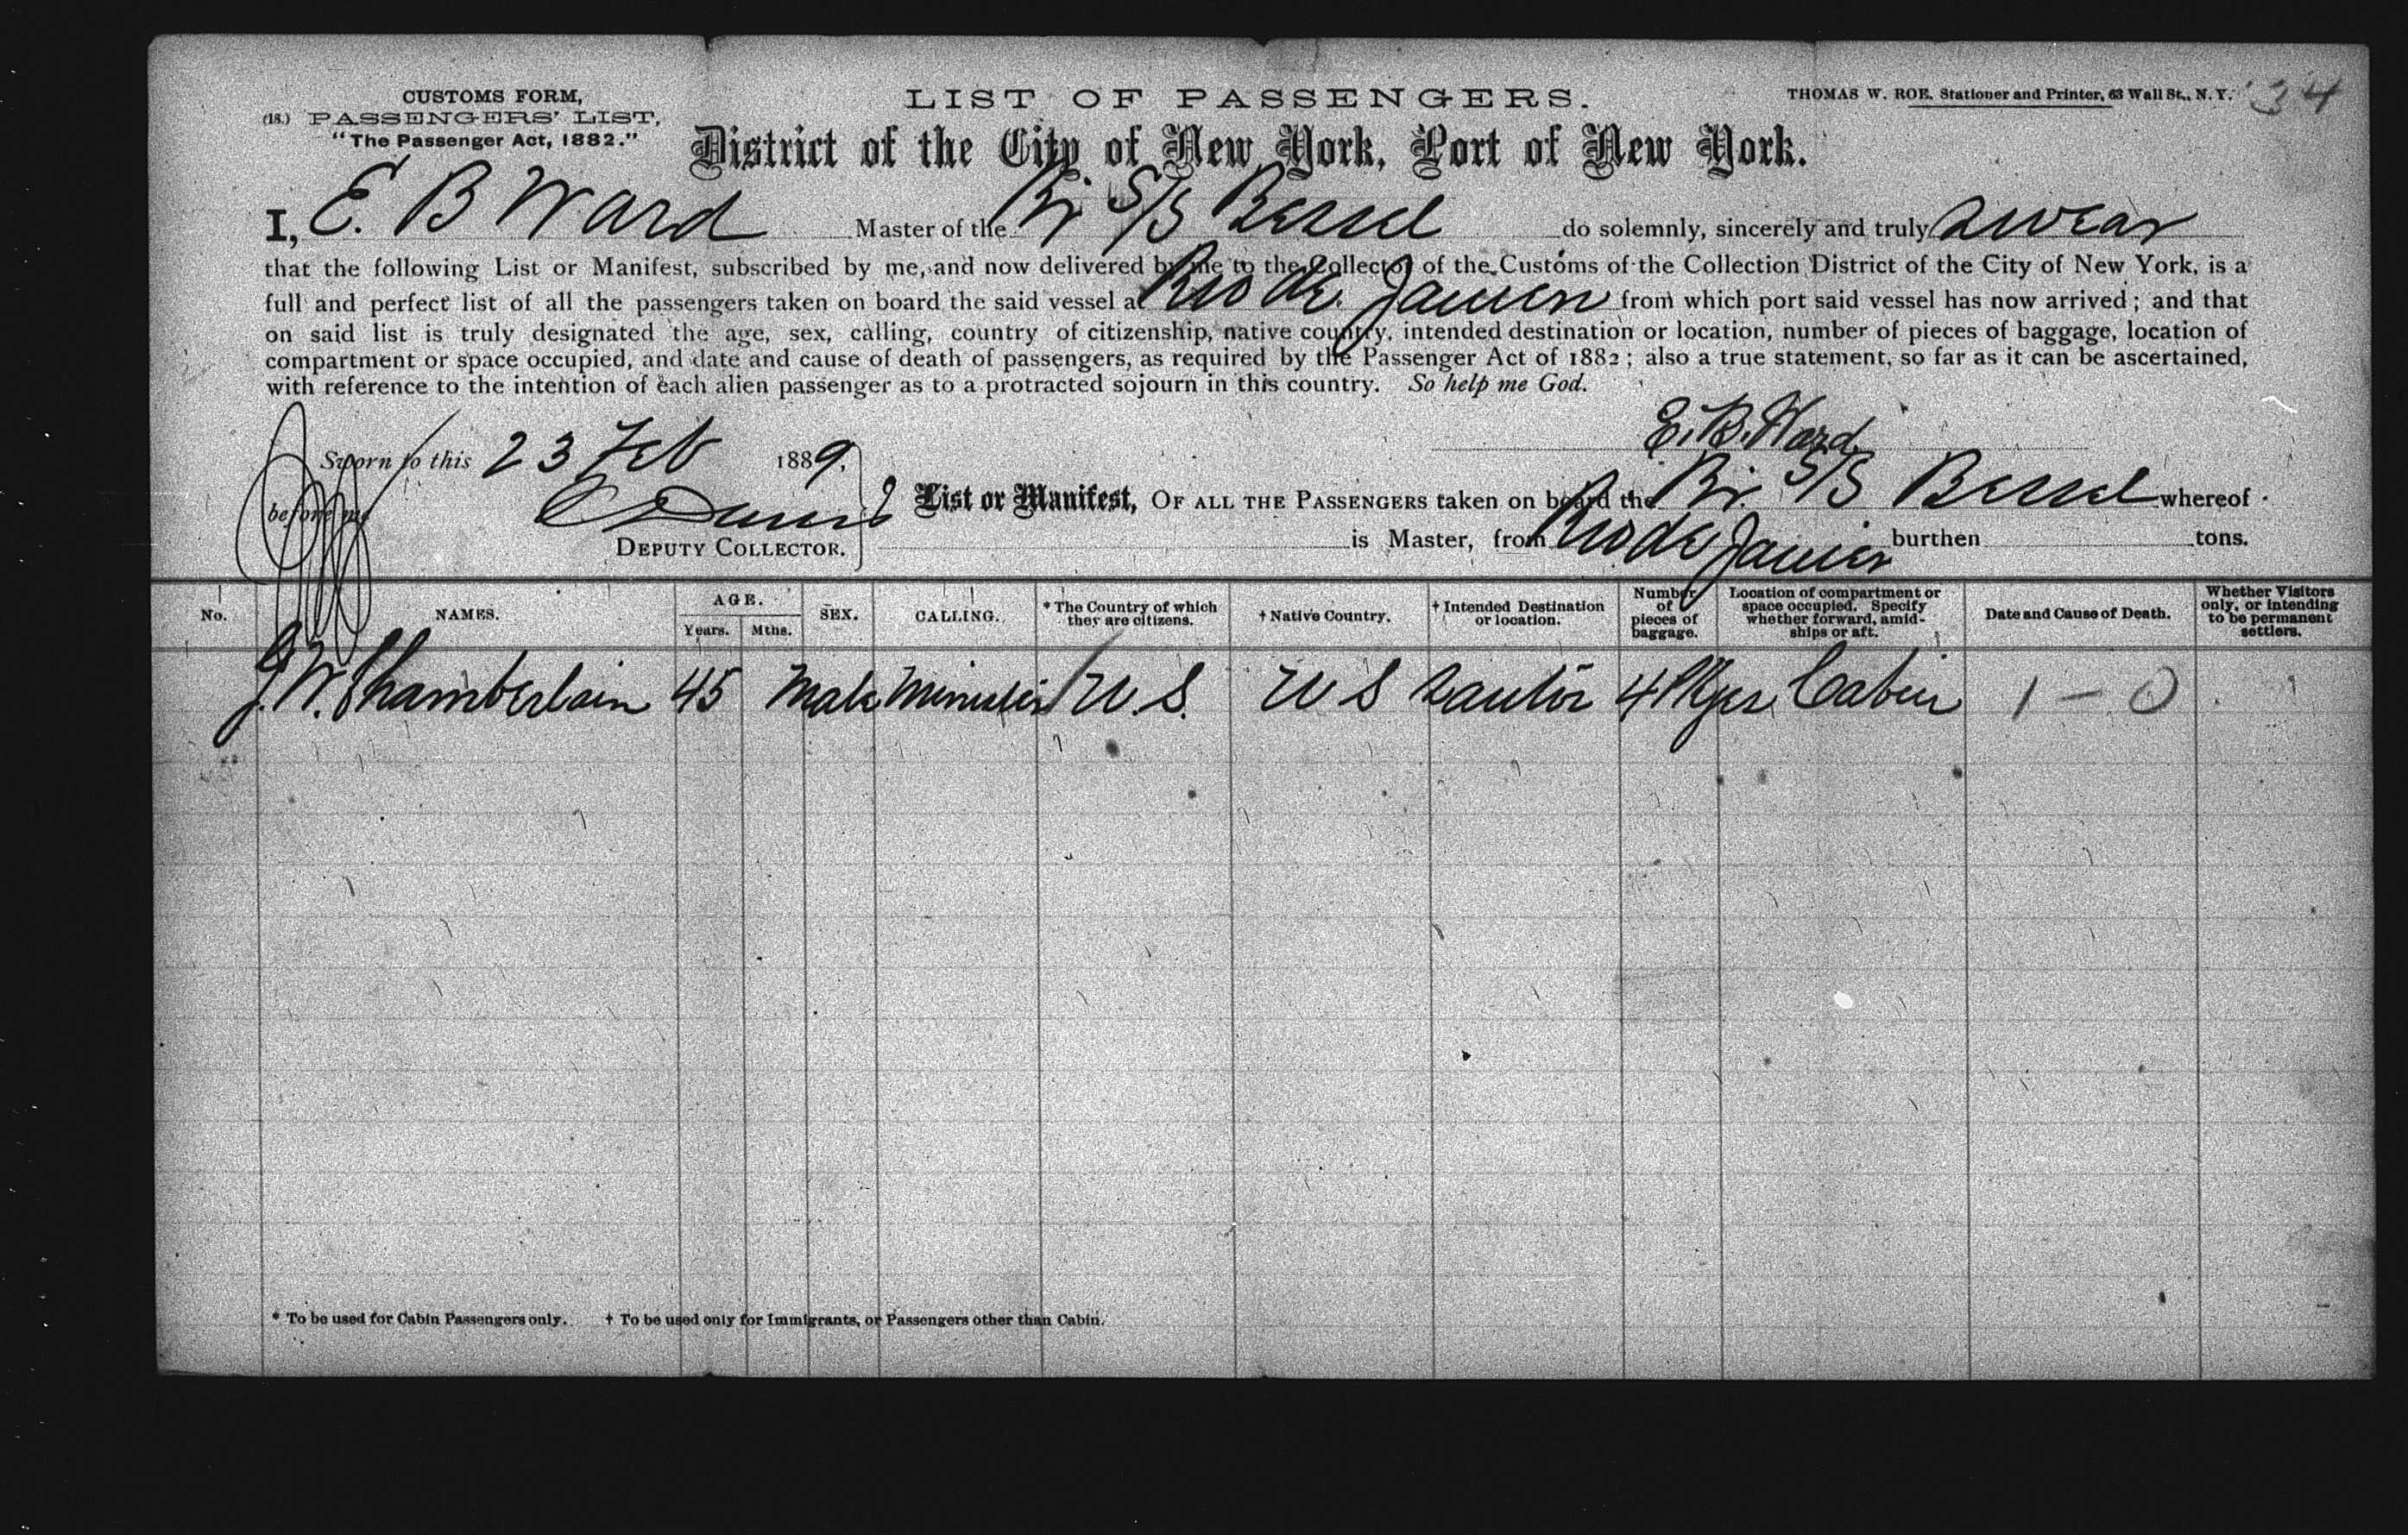 CUSTOMS FORM,
(18.) PASSENGERS' LIST,
"The Passenger Act, 1882."
LIST OF PASSENGERS.
THOMAS W. ROE. Stationer and Printer, 63 Wall St., N. Y.
34
District of the City of New York, Port of New York.
I, E. B Ward Master of the Br S/S Bessel do solemnly, sincerely and truly swear
that the following List or Manifest, subscribed by me, and now delivered by me to the Collector of the Customs of the Collection District of the City of New York, is a
full and perfect list of all the passengers taken on board the said vessel at Rio de Janeiro from which port said vessel has now arrived; and that
on said list is truly designated the age, sex, calling, country of citizenship, native country, intended destination or location, number of pieces of baggage, location of
compartment or space occupied, and date and cause of death of passengers, as required by the Passenger Act of 1882; also a true statement, so far as it can be ascertained,
with reference to the intention of each alien passenger as to a protracted sojourn in this country. So help me God.
E. B. Ward
Sworn to this 23 Feb 1889,
before me
DEPUTY COLLECTOR.
List or Manifest, OF ALL THE PASSENGERS taken on board the Br. S/S Bessel whereof
is Master, from Rio de Janeiro burthen tons.
No. NAMES. AGE. Years. Mths. SEX. CALLING. * The Country of which they are citizens. † Native Country. † Intended Destination or location. Number of pieces of baggage. Location of compartment or space occupied. Specify whether forward, amidships or aft. Date and Cause of Death. Whether Visitors only, or intending to be permanent settlers.
J. W. Chamberlain 45 Male Minister U.S. U S 4 Pkgs Cabin 1 - 0
* To be used for Cabin Passengers only. † To be used only for Immigrants, or Passengers other than Cabin.